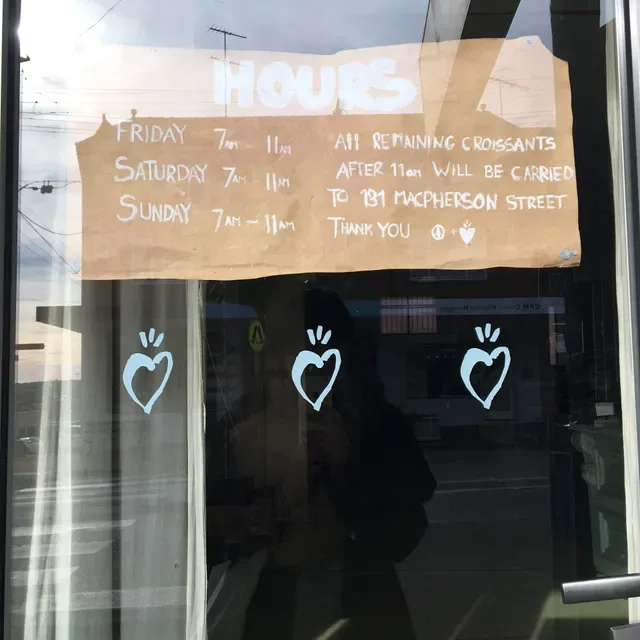 HOURS
FRIDAY 7AM 11AM
SATURDAY 7AM 11AM
SUNDAY 7AM - 11AM
All REMAINING CROISSANTS
AFTER 11am WILL BE CARRIED
TO 181 MACPHERSON STREET
THANK YOU